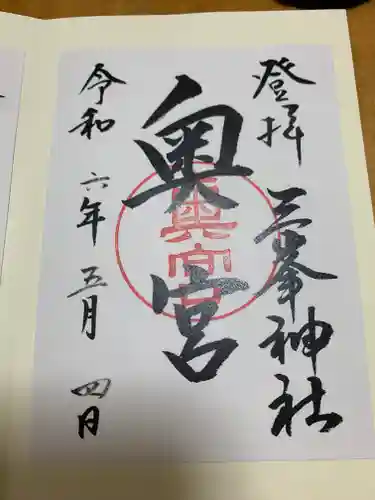 登拝 三峯神社
奥宮
令和六年五月四日
奥宮